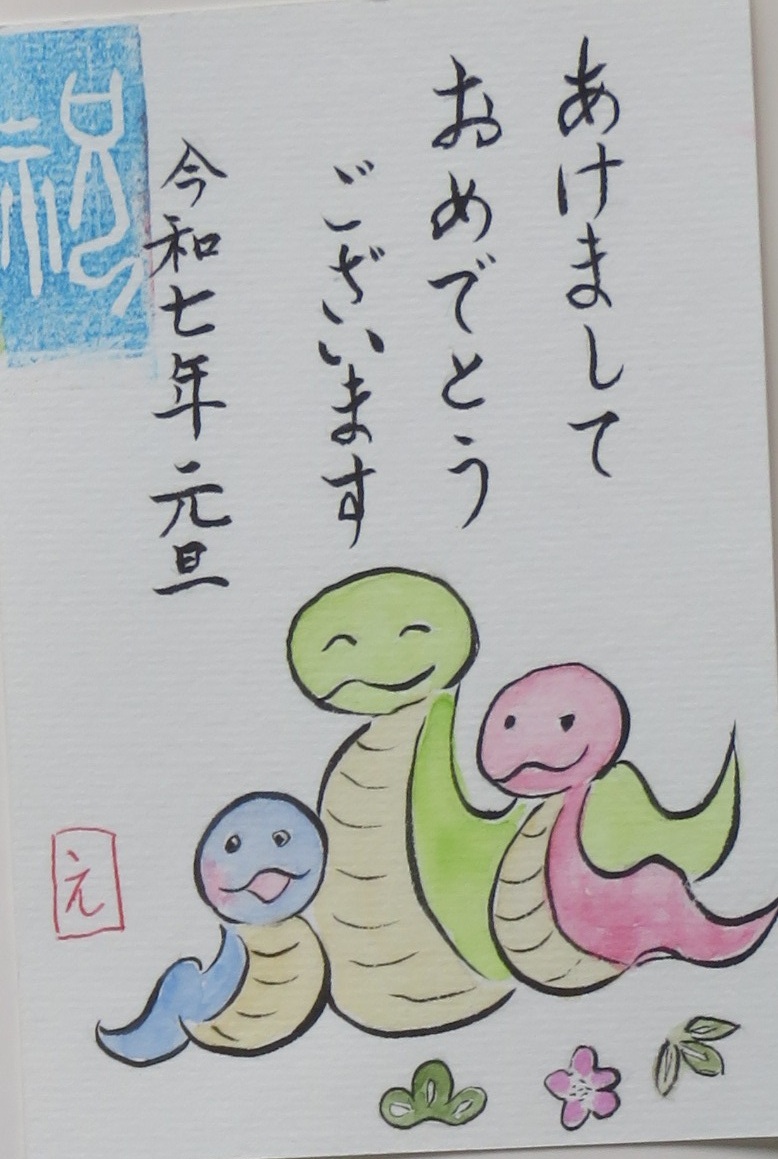 あけまして
おめでとう
ございます
令和七年 元旦
祝
え